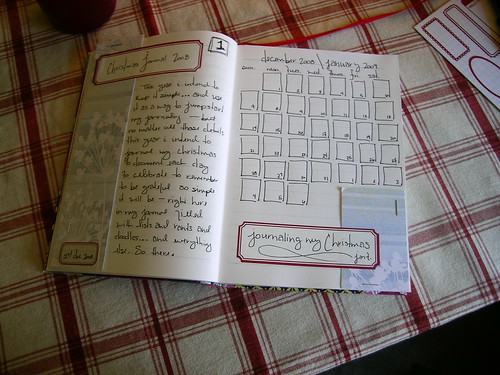 Christmas Journal 2008
1
This year i intend to
keep it simple... and use
it as a way to jumpstart
my journaling - but
no matter all those details
this year i intend to
journal my Christmas
to document each day
to celebrate to remember
to be grateful so simple
it will be - right here
in my journal filled
with lists and rants and
doodles... and everything
else. So there.
december 2008 / january 2009
sun. mon. tues. wed. thurs. fri. sat.
journaling my Christmas